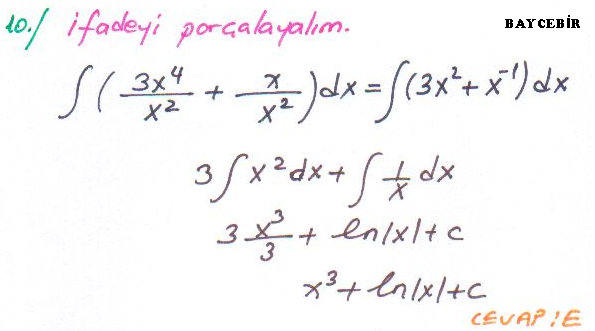 10./ ifadeyi porçalayalım. BAYCEBİR
∫(3x⁴/x² + x/x²)dx = ∫(3x² + x⁻¹)dx
3∫x²dx + ∫1/x dx
3 x³/3 + ln|x| + c
x³ + ln|x| + c
CEVAP: E